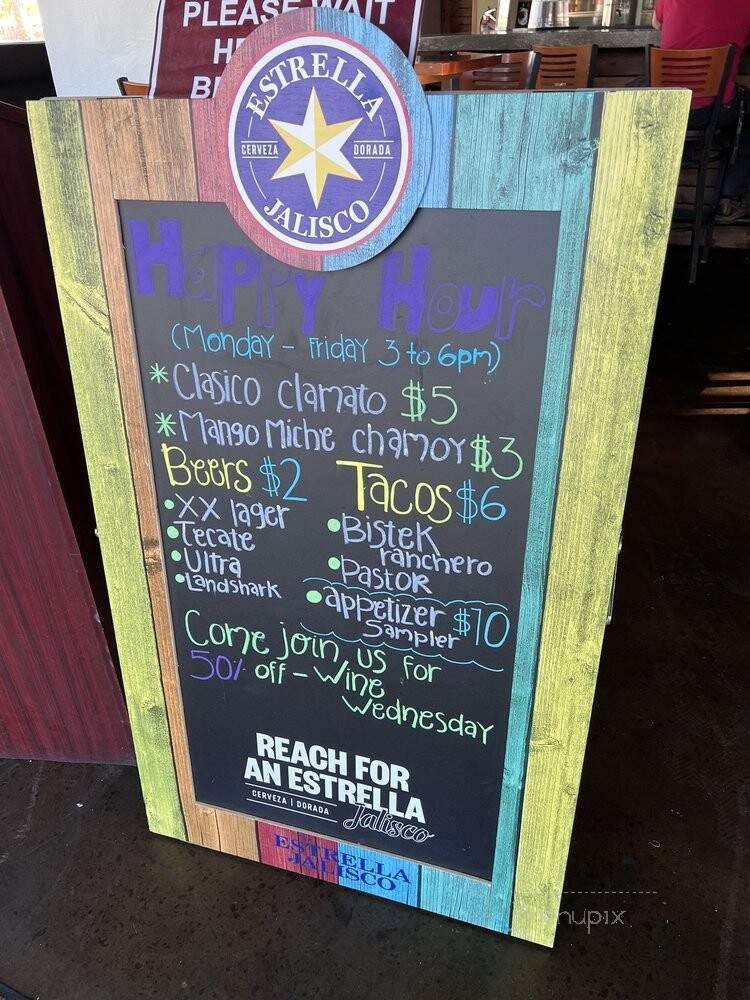 PLEASE WAIT
ESTRELLA
CERVEZA DORADA
JALISCO
Happy Hour
(Monday - Friday 3 to 6pm)
* Clasico clamato $5
* Mango Miche chamoy $3
Beers $2
• XX lager
• Tecate
• Ultra
• Landshark
Tacos $6
• Bistek
ranchero
• Pastor
• appetizer $10
Sampler
Come join us for
50% off - Wine
Wednesday
REACH FOR
AN ESTRELLA
CERVEZA | DORADA
Jalisco
ESTRELLA
JALISCO